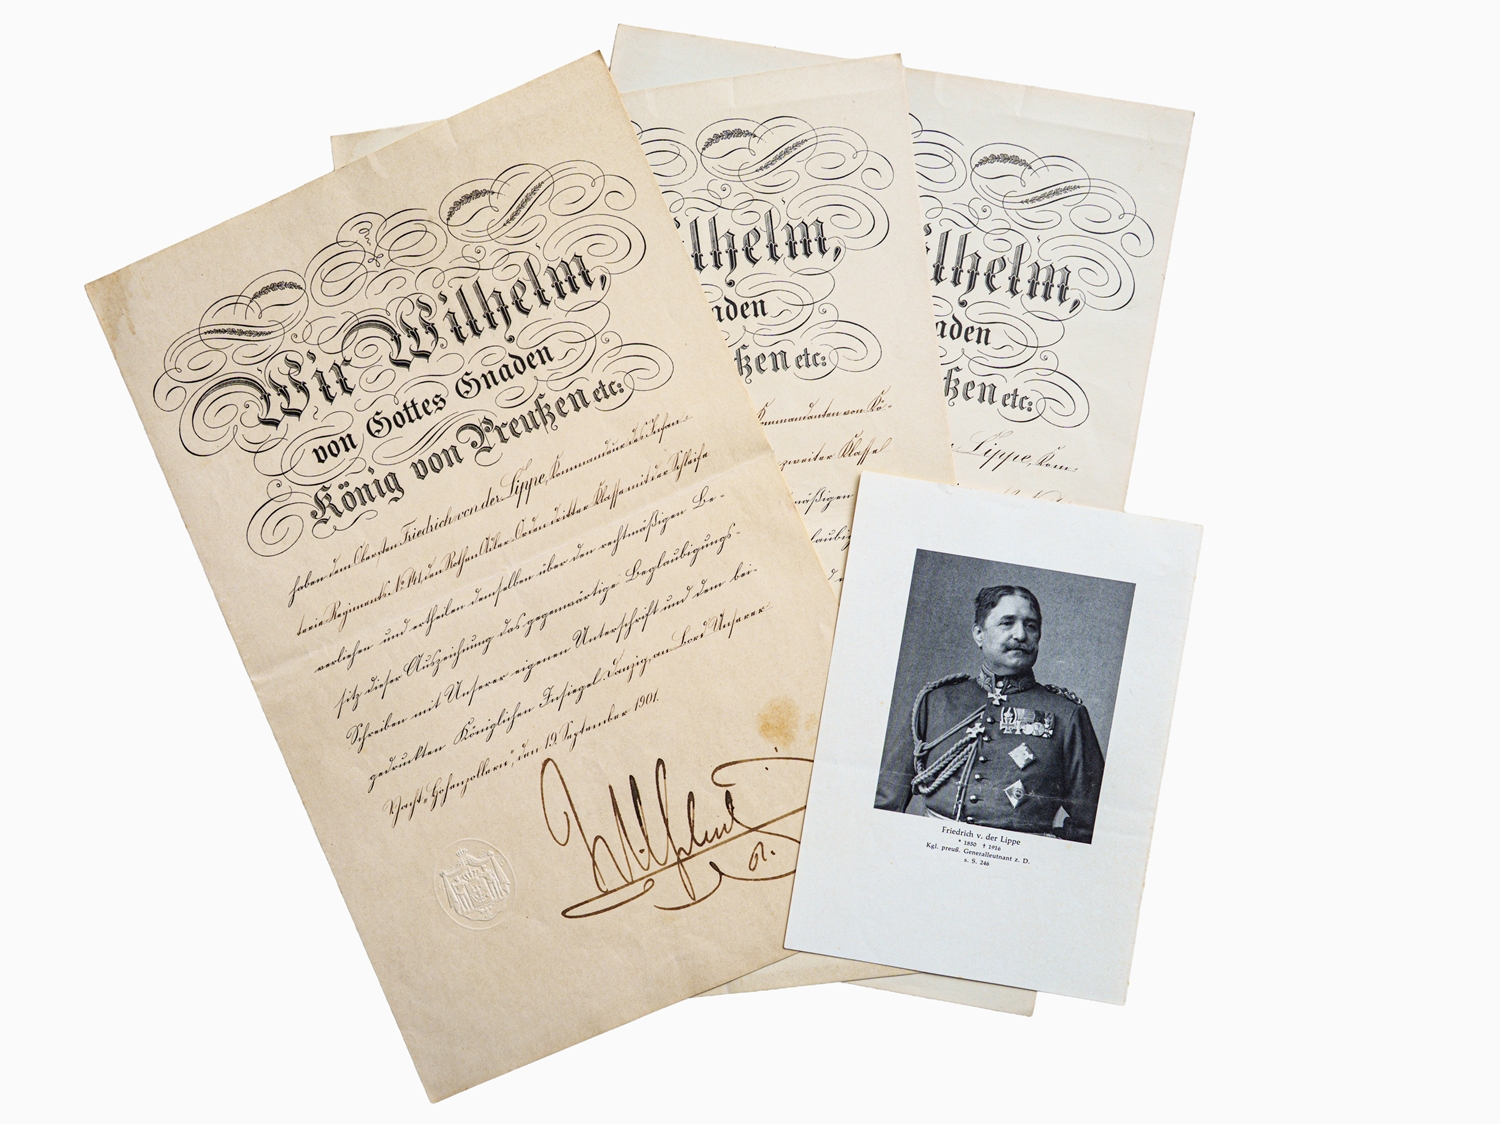 Wir Wilhelm,
von Gottes Gnaden
König von Preußen etc:
haben dem Obersten Friedrich von der Lippe, Kommandeur des Infan-
terie Regiments № 141, den Rothen Adler-Orden dritter Klasse mit der Schleife
verliehen und ertheilen demselben über den rechtmäßigen Be-
sitz dieser Auszeichnung das gegenwärtige Beglaubigungs-
Schreiben mit Unserer eigenen Unterschrift und dem bei-
gedruckten Königlichen Insiegel. Danzig, an Bord Unserer
Yacht „Hohenzollern“, den 19. September 1901.
Wilhelm
R.
ilhelm,
aden
ßen etc:
Kommandanten von Kö-
zweiter Klasse
mäßigen
laubig
ilhelm,
aden
ßen etc:
Lippe, Kom-
Friedrich v. der Lippe
* 1850 † 1916
Kgl. preuß. Generalleutnant z. D.
s. S. 246